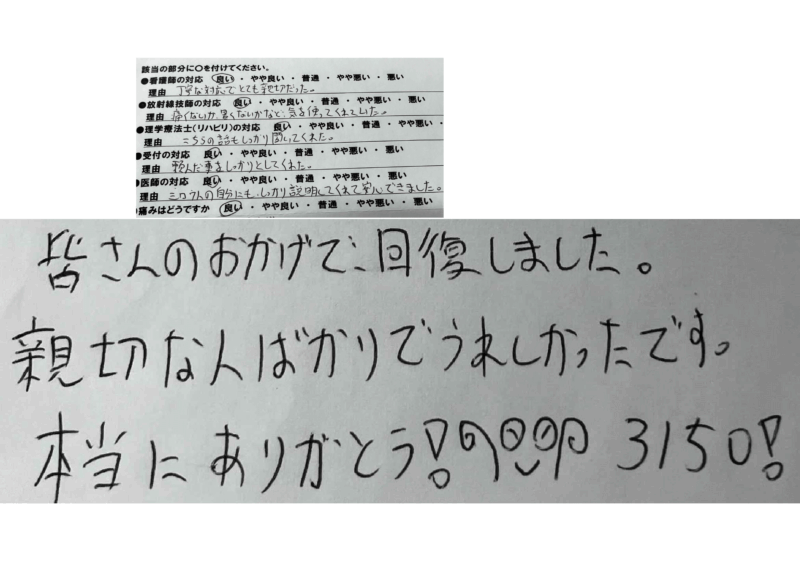 該当の部分に○を付けてください。
●看護師の対応 良い ・ やや良い ・ 普通 ・ やや悪い ・ 悪い
理由 丁寧な対応でとても親切だった。
●放射線技師の対応 良い ・ やや良い ・ 普通 ・ やや悪い ・ 悪い
理由 痛くないか、寒くないかなど、気を使ってくれていた。
●理学療法士(リハビリ)の対応 良い ・ やや良い ・ 普通 ・ やや悪い ・ 悪い
理由 こちらの話もしっかり聞いてくれた。
●受付の対応 良い ・ やや良い ・ 普通 ・ やや悪い ・ 悪い
理由 頼んだ事をしっかりとしてくれた。
●医師の対応 良い ・ やや良い ・ 普通 ・ やや悪い ・ 悪い
理由 自分にも、しっかり説明してくれて安心できました。
痛みはどうですか 良い ・ やや良い ・ 普通 ・ やや悪い ・ 悪い
皆さんのおかげで、回復しました。
親切な人ばかりでうれしかったです。
本当にありがとう! 3150!